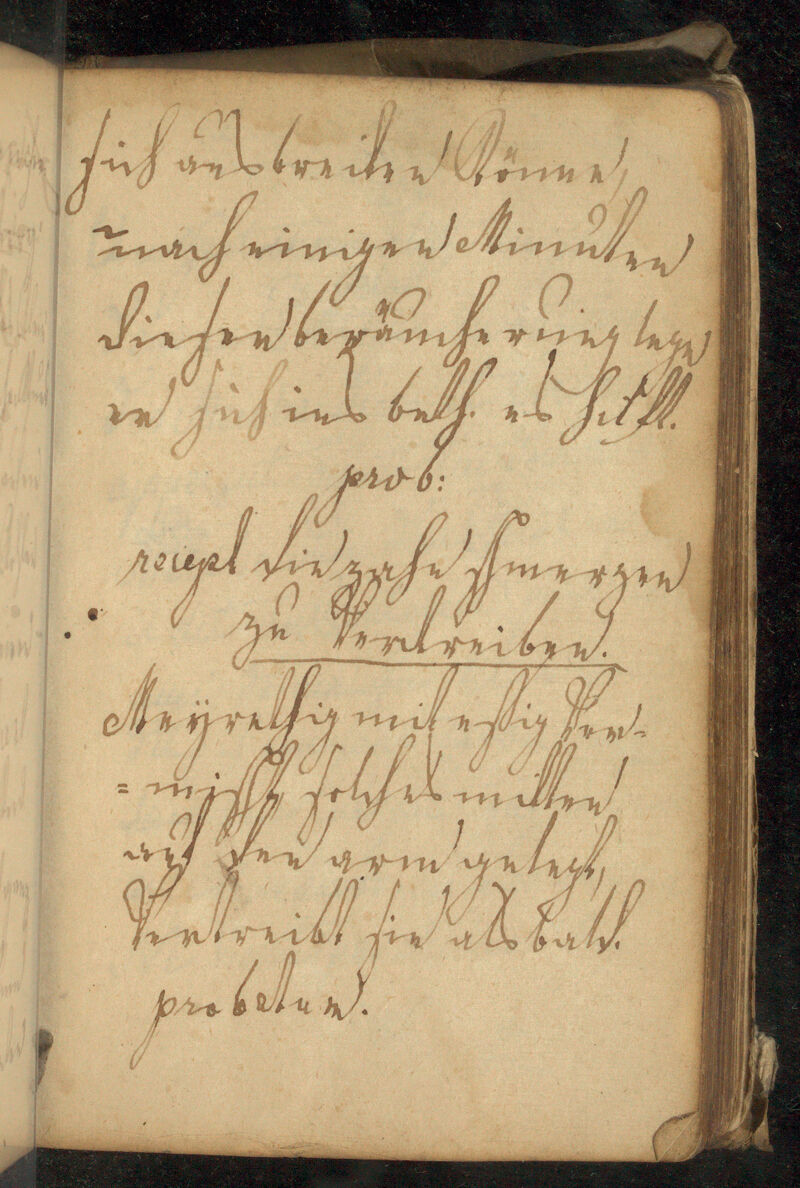 sich ausbreiten könne,
nach einigen Minuten
dieser beräucherung lege
er sich ins beth. es hilft.
prob:
recept die zahn schmerzen
zu Vertreiben.
Meyrethig mit essig Ver-
= mischt, solches mitten
auf den arm gelegt,
Vertreibt sie alsbald.
probatum.